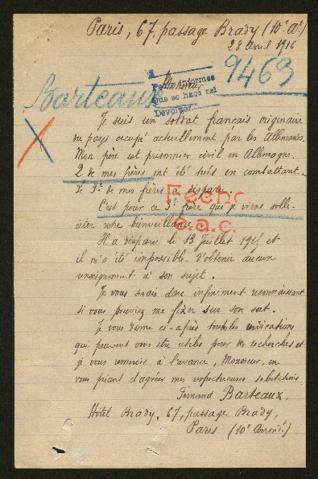 Paris, 67, passage Brady (10e Ar)
28 Avril 1916
9463
Barteaux
Monsieur
Je suis un soldat français originaire
du pays occupé actuellement par les Allemands.
Mon père est prisonnier civil en Allemagne.
2 de mes frères ont été tués en combattant.
Le 3e de mes frères a disparu.
C'est pour ce 3e frère que je viens solli-
citer votre bienveillance.
Il a disparu le 13 Juillet 1915 et
il m'a été impossible d'obtenir aucun
renseignement à son sujet.
Je vous serais donc infiniment reconnaissant
si vous pouviez me fixer sur son sort.
Je vous donne ci-après toutes les indications
qui peuvent vous être utiles pour les recherches et
je vous remercie à l'avance, Monsieur, en
vous priant d'agréer mes respectueuses salutations
Fernand Barteaux,
Hôtel Brady, 67, passage Brady,
Paris (10e Arrondt)